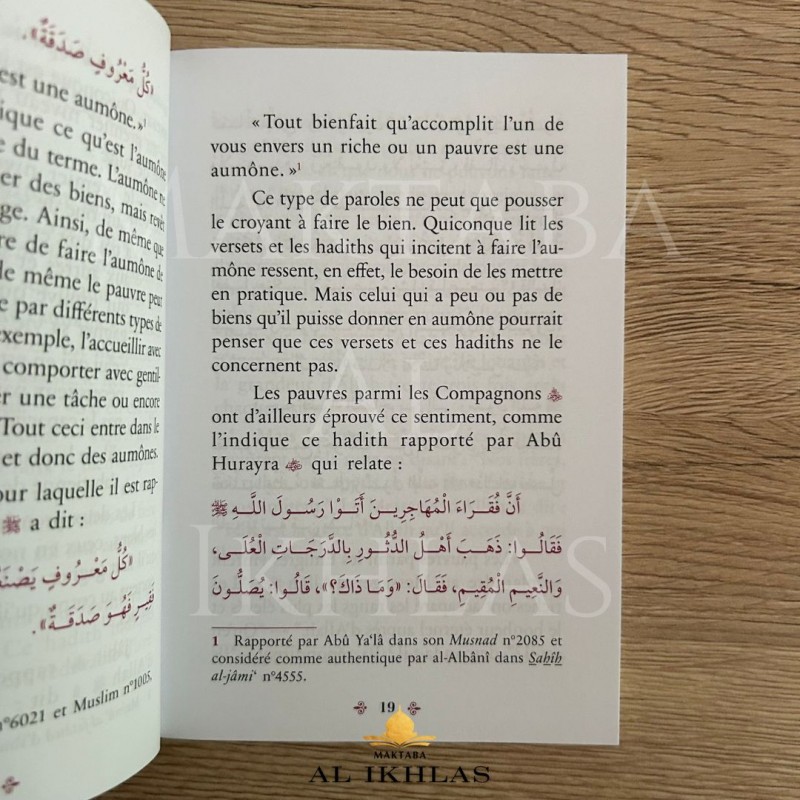 «كُلُّ مَعْرُوفٍ صَدَقَةٌ».
est une aumône.»¹
ique ce qu'est l'aumône
e du terme. L'aumône ne
er des biens, mais revêt
ge. Ainsi, de même que
re de faire l'aumône de
le même le pauvre peut
e par différents types de
exemple, l'accueillir avec
comporter avec gentil-
er une tâche ou encore
Tout ceci entre dans le
et donc des aumônes.
our laquelle il est rap-
ﷺ a dit :
«كُلُّ مَعْرُوفٍ يَصْنَعُ
فَقِيرٍ فَهُوَ صَدَقَةٌ».
n°6021 et Muslim n°1005.
« Tout bienfait qu'accomplit l'un de
vous envers un riche ou un pauvre est une
aumône. »¹
Ce type de paroles ne peut que pousser
le croyant à faire le bien. Quiconque lit les
versets et les hadiths qui incitent à faire l'au-
mône ressent, en effet, le besoin de les mettre
en pratique. Mais celui qui a peu ou pas de
biens qu'il puisse donner en aumône pourrait
penser que ces versets et ces hadiths ne le
concernent pas.
Les pauvres parmi les Compagnons
ont d'ailleurs éprouvé ce sentiment, comme
l'indique ce hadith rapporté par Abû
Hurayra qui relate :
أَنَّ فُقَرَاءَ الْمُهَاجِرِينَ أَتَوْا رَسُولَ اللَّهِ ﷺ
فَقَالُوا: ذَهَبَ أَهْلُ الدُّثُورِ بِالدَّرَجَاتِ الْعُلَى،
وَالنَّعِيمِ الْمُقِيمِ، فَقَالَ: «وَمَا ذَاكَ؟»، قَالُوا: يُصَلُّونَ
1 Rapporté par Abû Ya'lâ dans son Musnad n°2085 et
considéré comme authentique par al-Albânî dans Sahîh
al-jâmi' n°4555.
19
MAKTABA
AL IKHLAS
MAKTABA
AL
IKHLAS